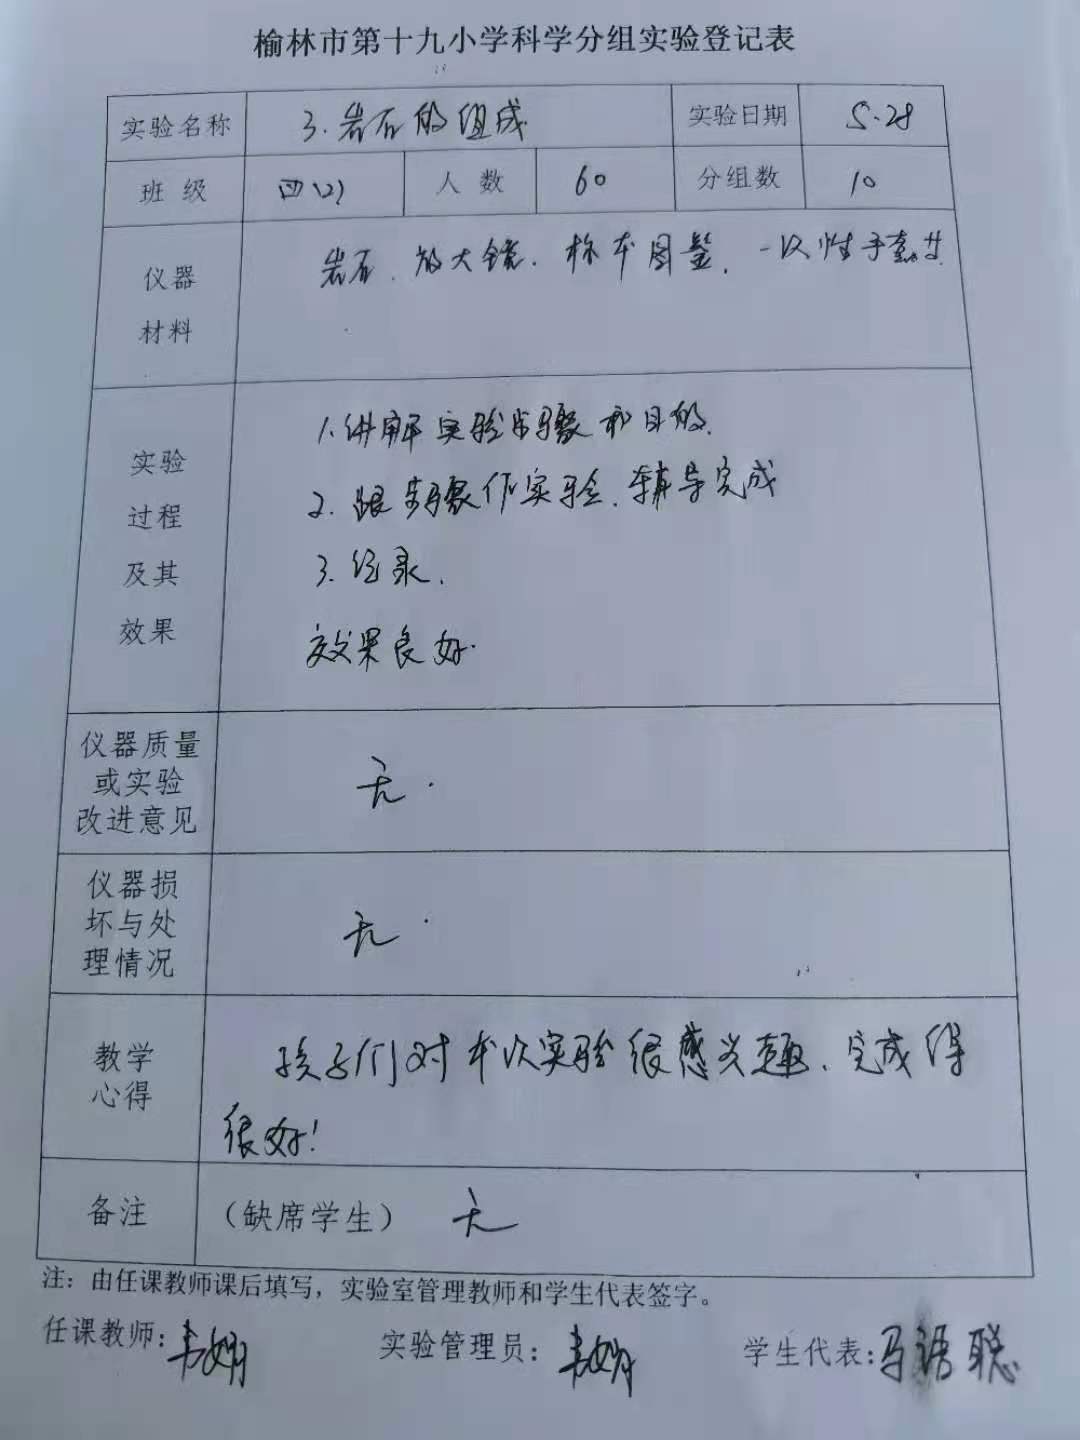 榆林市第十九小学科学分组实验登记表
实验名称 3.岩石的组成 实验日期 5.28
班级 四(2) 人数 60 分组数 10
仪器
材料
岩石、放大镜、标本图鉴、一次性手套等
实验
过程
及其
效果
1.讲解实验步骤和目的.
2.跟步骤作实验、辅导完成
3.记录.
效果良好.
仪器质量
或实验
改进意见
无.
仪器损
坏与处
理情况
无.
教学
心得
孩子们对本次实验很感兴趣、完成得
很好!
备注 (缺席学生) 无
注：由任课教师课后填写，实验室管理教师和学生代表签字。
任课教师: 实验管理员: 学生代表:马语聪